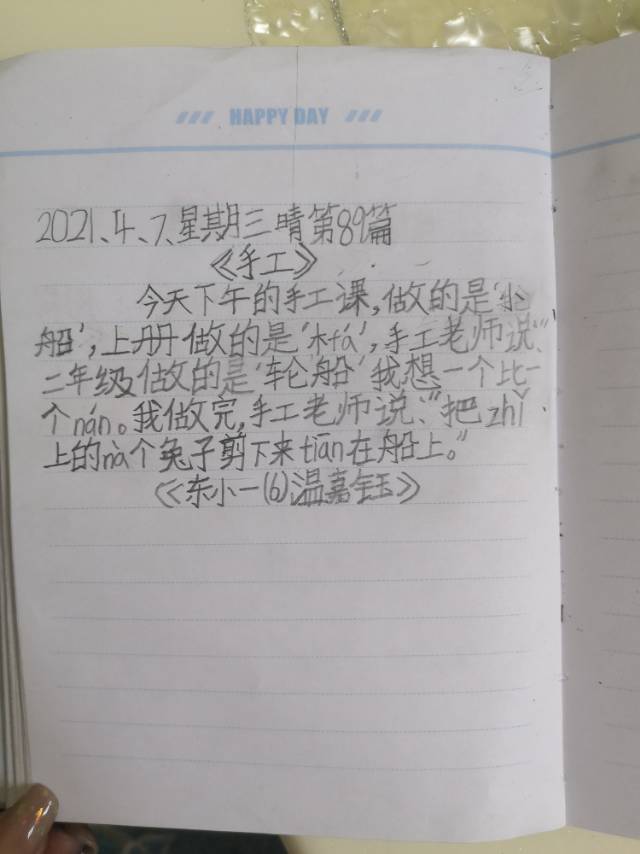 HAPPY DAY
2021、4、7、星期三晴第89篇
《手工》
今天下午的手工课,做的是‘小
船’,上册做的是‘木fá’,手工老师说:“
二年级做的是‘轮船’我想一个比一
个nán。我做完,手工老师说:“把zhǐ
上的nà个兔子剪下来tiān在船上。”
《东小一(6)温嘉钰》